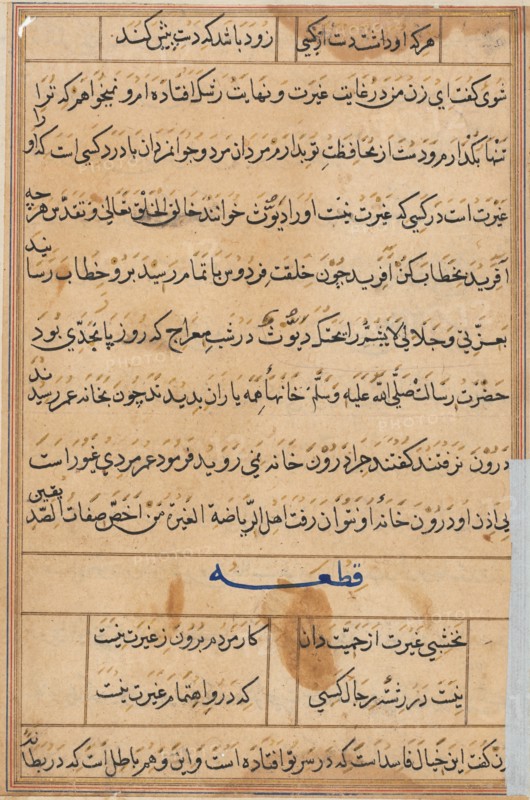 هر که او داشت دست از کسی زود باشد که دست پیش کند
شوی کفت ای زن من در غایت غیرت و نهایت رشک افتاده ام و نمیخواهم که ترا
تنها بکذارم و دست از محافظت تو بدارم مردان مرد و جوانمردان با درد کسی است که او را
غیرت است در کسی که غیرت نیست او را دیوّث خوانند خالق الخلق تعالی و تقدّس هر چه
آفرید بخطاب کن آفرید چون خلقت فردوس باتمام رسید برو خطاب رسانید
بعزّتی و جلالی لا یشمّ رایحتک دیوّث در شب معراج که روز بود
حضرت رسالت صلّی اللّه علیه وسلّم خانهاء همه یاران بدیدند چون بخانه عمر رسیدند
درون نرفتند کفتند چرا درون خانه نمی روید فرمود عمر مردی غیور است
بی اذن او درون خانه او نتوان رفت اهل الرّیاضة الغیرة من اخصّ صفات الصّدیقین
قطعه
نخشبی غیرت از حمیّت دان کار مردم برون ز غیرت نیست
نیست در رشته رجال کسی که درو اهتمام غیرت نیست
زن کفت این خیال فاسد است که در سر تو افتاده است و این وهم باطل است که در